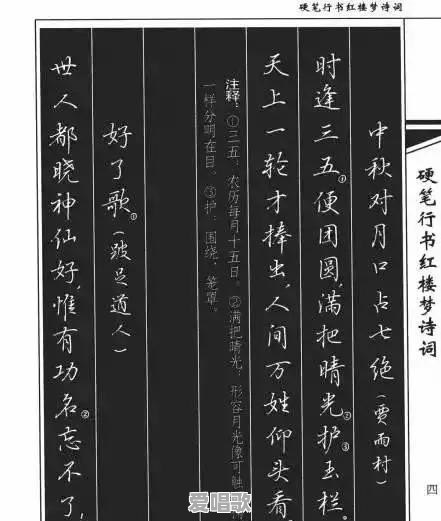 硬笔行书红楼梦诗词
硬笔行书红楼梦诗词
四
中秋对月口占七绝（贾雨村）
时逢三五①便团圆，满把晴光②护③玉栏。
天上一轮才捧出，人间万姓仰头看
注释：①三五：农历每月十五日。②满把晴光：形容月光像可触
一样分明在目。③护：围绕、笼罩。
好了歌①（跛足道人）
世人都晓神仙好，惟有功名②忘不了，
爱唱歌